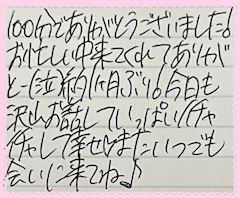 100分とありがとうございました!
お忙しい中来てくれてありが
と〜(泣)約1ヶ月ぶり!今日も
沢山お話していっぱいイチャ
イチャして幸せ!またいつでも
会いに来てね♪